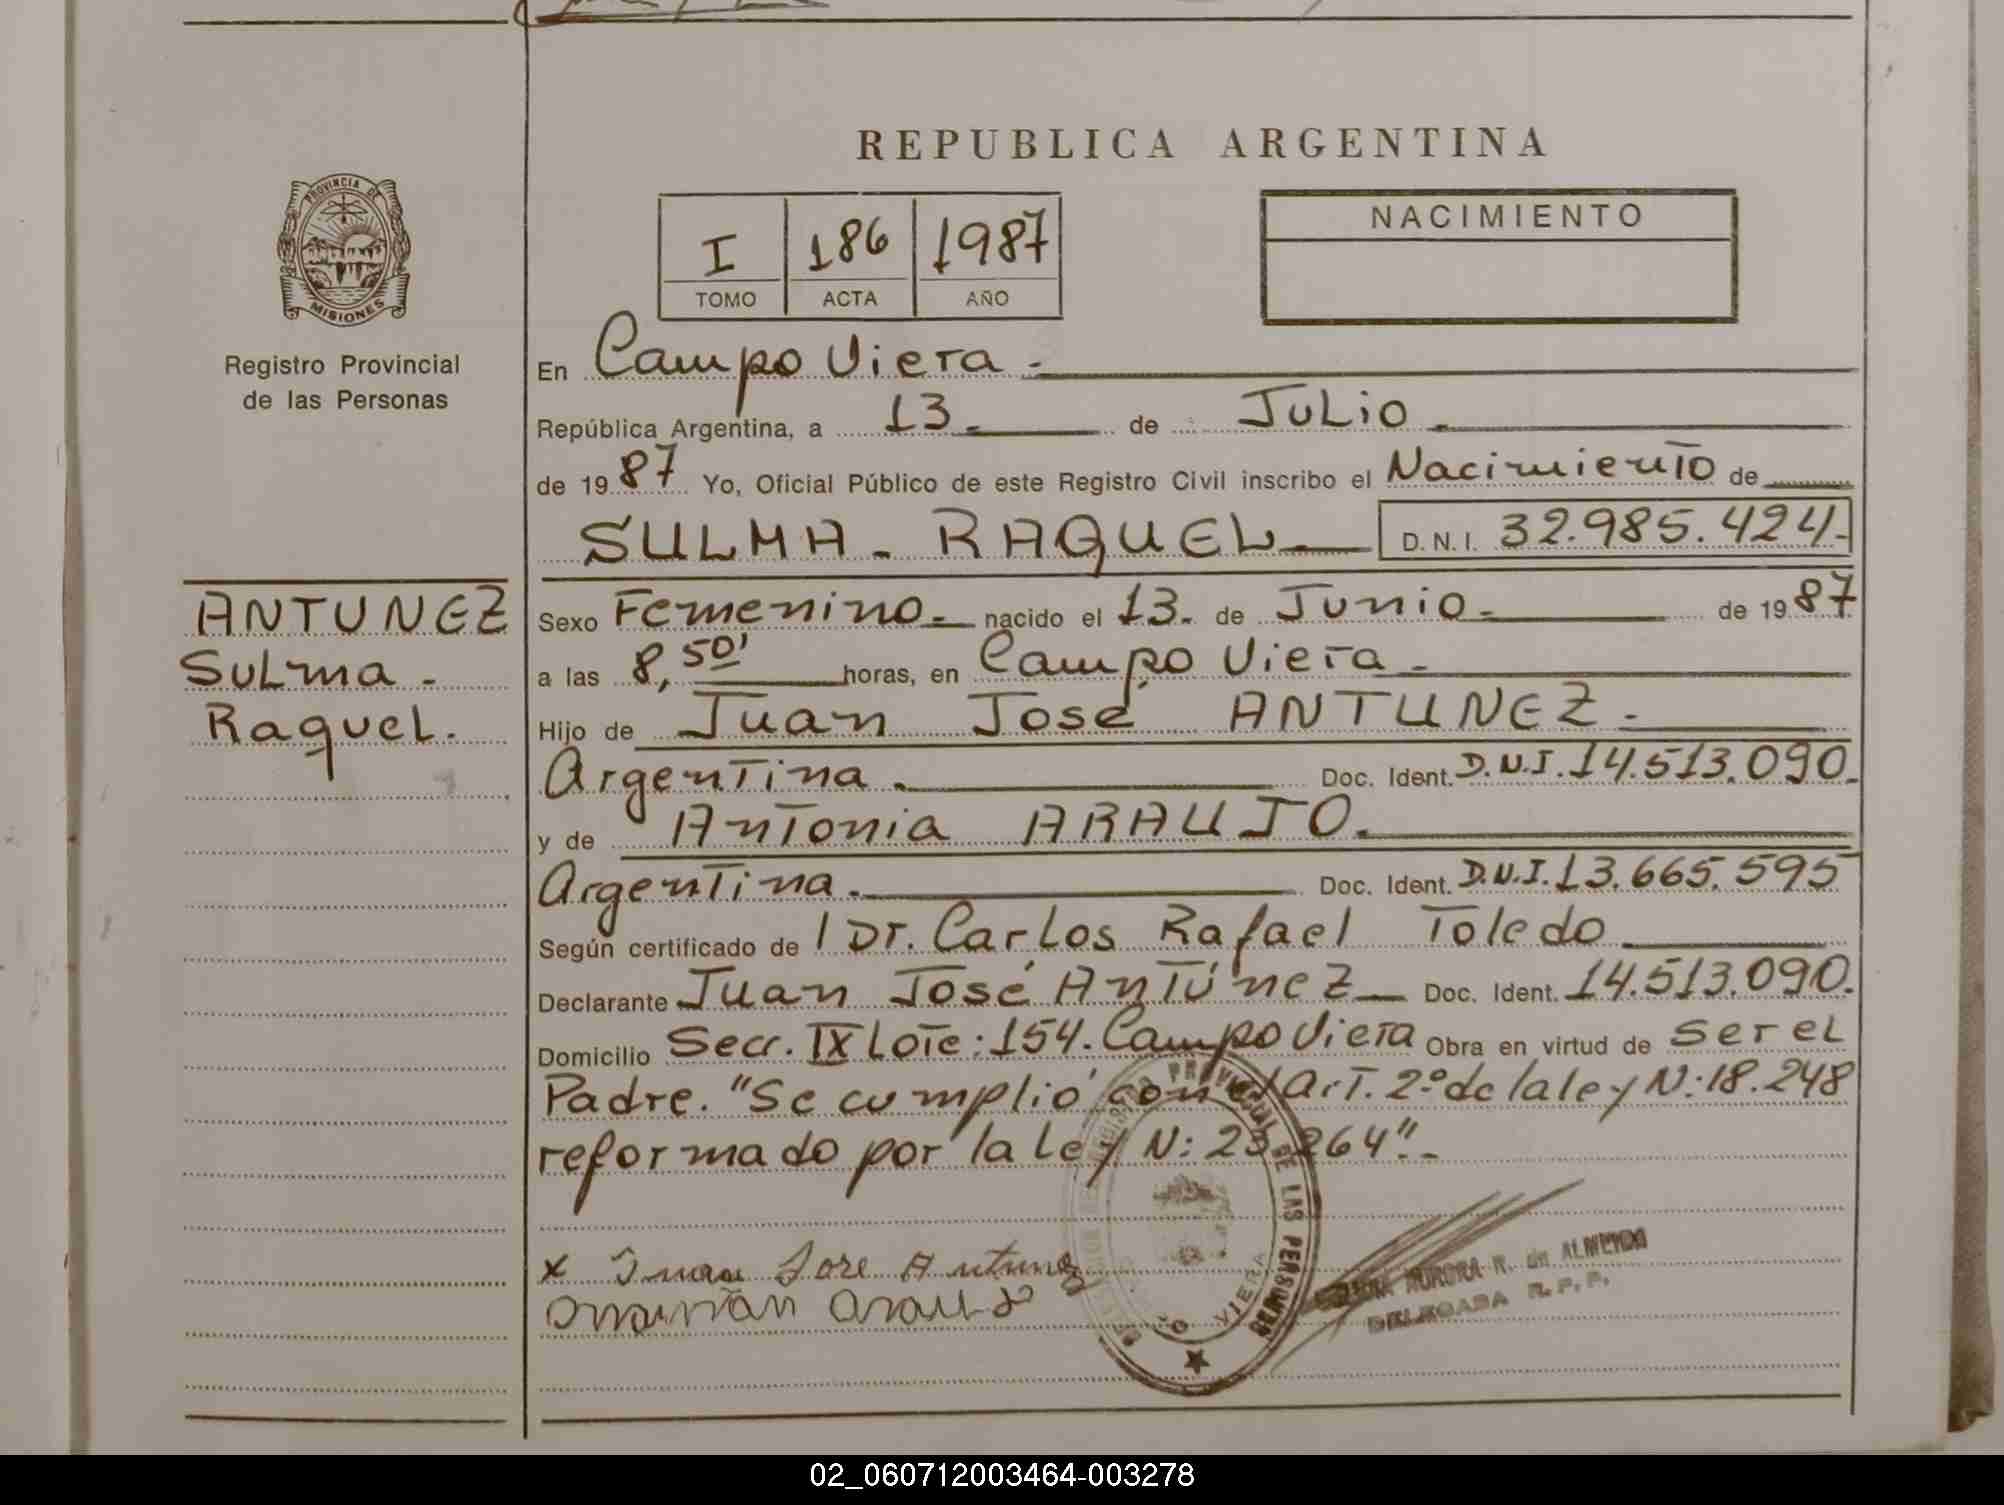 REPUBLICA ARGENTINA
PROVINCIA DE
MISIONES
Registro Provincial
de las Personas
I 186 1987
TOMO ACTA AÑO
NACIMIENTO
En Campo Viera.-
República Argentina, a 13.- de Julio.-
de 1987 Yo, Oficial Público de este Registro Civil inscribo el Nacimiento de
SULMA - RAQUEL.- D.N.I. 32.985.424-
ANTUNEZ
Sulma -
Raquel.
Sexo Femenino.- nacido el 13.- de Junio.- de 1987
a las 8,50' horas, en Campo Viera.-
Hijo de Juan José ANTUNEZ.-
Argentina.- Doc. Ident. D.N.I. 14.513.090.-
y de Antonia ARAUJO.-
Argentina.- Doc. Ident. D.N.I. 13.665.595
Según certificado de / Dr. Carlos Rafael Toledo
Declarante Juan José Antúnez Doc. Ident. 14.513.090.
Domicilio Secc. IX Lote: 154. Campo Viera Obra en virtud de ser el
Padre. "Se cumplió con el Art. 2º de la ley N: 18.248
reformado por la ley N: 23.264".-
x Juan Jose Antunez
PROVINCIAL DE LAS PERSONAS
VIERA
AURORA R. de ALMEIDA
DELEGADA R. P. P.
02_060712003464-003278